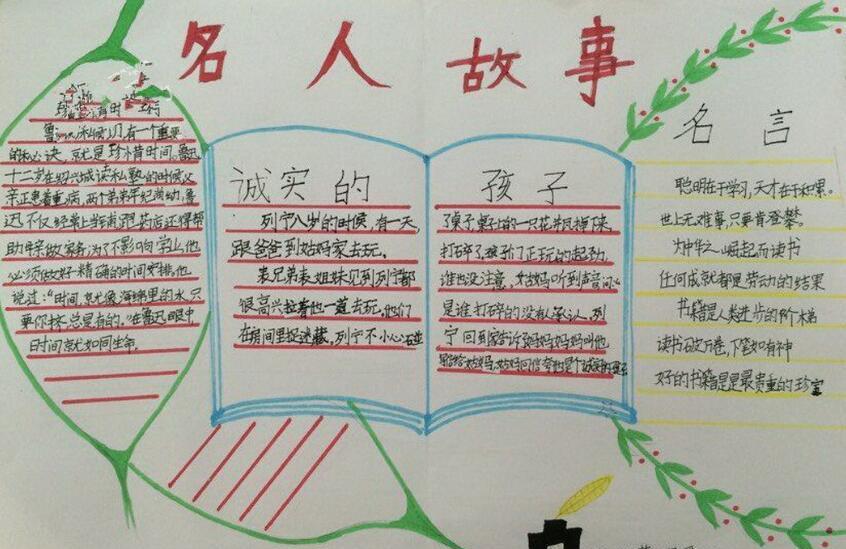 名人故事
珍惜时间
鲁迅小时候认为,有一个重要
的秘诀,就是珍惜时间。鲁迅
十二岁在绍兴城读私塾的时候父
亲正患着重病,两个弟弟年纪尚幼,鲁
迅不仅经常上当铺,跑药店还得帮
助母亲做家务,为了不影响学业,他
必须做好精确的时间安排,他
说过:“时间,就像海绵里的水,只
要你挤,总是有的。”在鲁迅眼中,
时间就如同生命。
诚实的
列宁八岁的时候,有一天,
跟爸爸到姑妈家去玩。
表兄弟表姐妹见到列宁都
很高兴拉着他一道去玩。他们
在房间里捉迷藏,列宁不小心碰
孩子
了桌子,桌子上的一只花瓶掉下来,
打碎了,孩子们正玩的起劲,
谁也没注意,姑妈听到声音问
是谁打碎的没有人承认,列
宁回到家告诉妈妈妈妈叫他
写信给姑妈,姑妈回信夸他是个诚实的孩子
名言
聪明在于学习,天才在于积累。
世上无难事,只要肯登攀。
为中华之崛起而读书
任何成就都是劳动的结果
书籍是人类进步的阶梯
读书破万卷,下笔如有神
好的书籍是是最贵重的珍宝